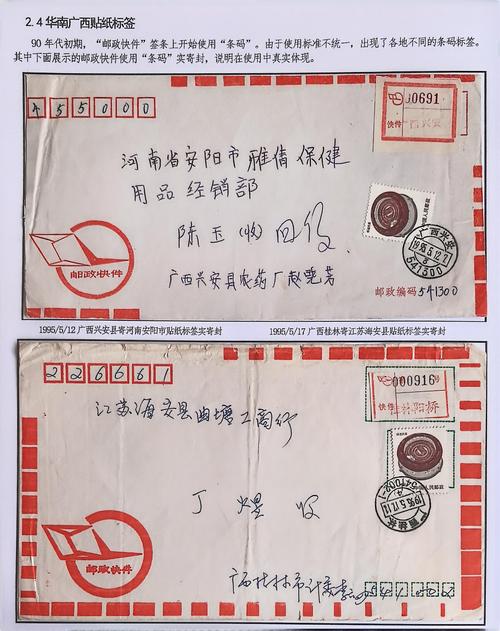 2.4 华南广西贴纸标签
90 年代初期，“邮政快件”签条上开始使用“条码”。由于使用标准不统一，出现了各地不同的条码标签。
其中下面展示的邮政快件使用“条码”实寄封，说明在使用中真实体现。
455000
00691
快件 广西兴安
河南省安阳市雅倩保健
用品经销部
陈玉(收)
中国人民邮政
广西兴安
1995.5.12.
8
541300
邮政快件
广西兴安县农药厂赵
邮政编码 541300
1995/5/12 广西兴安县寄河南安阳市贴纸标签实寄封
1995/5/17 广西桂林寄江苏海安县贴纸标签实寄封
226661
000916
快件 桂林阳桥
江苏海安县曲塘工商行
中国人民邮政
丁 收
1995.5.17.
广西桂林
邮政快件
广西桂林市